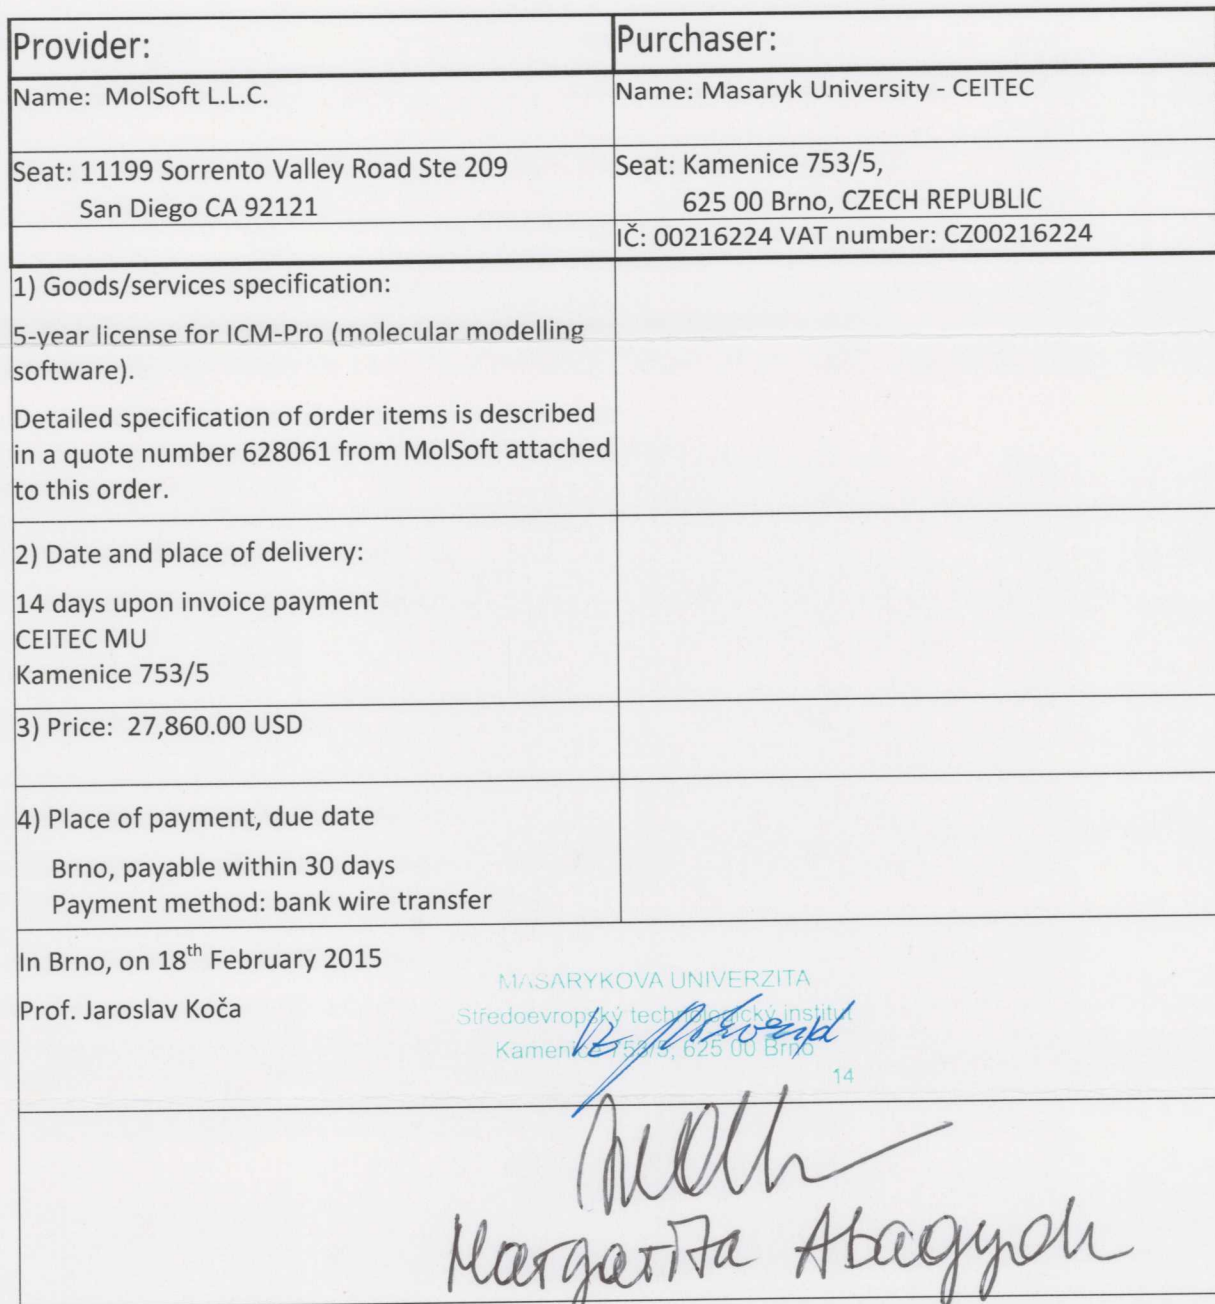 Provider:
Purchaser:
Name: MolSoft L.L.C.
Name: Masaryk University - CEITEC
Seat: 11199 Sorrento Valley Road Ste 209
San Diego CA 92121
Seat: Kamenice 753/5,
625 00 Brno, CZECH REPUBLIC
IČ: 00216224 VAT number: CZ00216224
1) Goods/services specification:
5-year license for ICM-Pro (molecular modelling
software).
Detailed specification of order items is described
in a quote number 628061 from MolSoft attached
to this order.
2) Date and place of delivery:
14 days upon invoice payment
CEITEC MU
Kamenice 753/5
3) Price: 27,860.00 USD
4) Place of payment, due date
Brno, payable within 30 days
Payment method: bank wire transfer
In Brno, on 18th February 2015
Prof. Jaroslav Koča
MASARYKOVA UNIVERZITA
Středoevropský technologický institut
Kamenice 753/5, 625 00 Brno
14
Margarita Abagyan